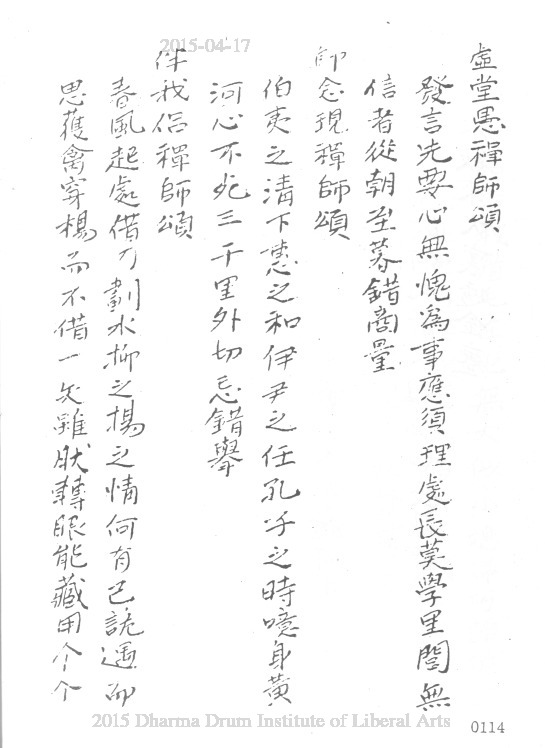 2015-04-17
虛堂愚禪師頌
發言先要心無愧為事應須理處長莫學里閭無
信者從朝至暮錯商量
師念現禪師頌
伯夷之清下惠之和伊尹之任孔子之時噫身黃
河心不死三千里外切忌錯舉
伴我侶禪師頌
春風起處借刀劃水柳之楊之情何有已詭遇而
思獲禽穿楊而不借一矢雖肰轉眼能藏用个个
2015 Dharma Drum Institute of Liberal Arts
0114